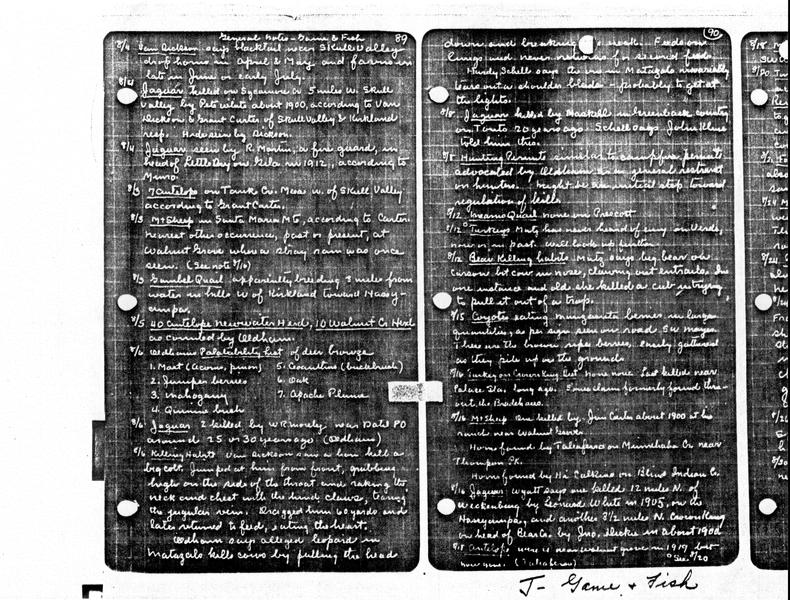 General Notes - Game & Fish 89
8/4 Van Dickson says blacktail near Skull Valley
drop horns in April & May and fawns in
late in June or early July.
8/4 Jaguar killed on Sycamore Cr 5 miles W. Skull
Valley by Pete about 1900, according to Van
Dickson & Grant Carter of Skull Valley & Kirkland
resp. Hide seen by Dickson.
8/4 Jaguar seen by R. Martin, a fire guard, in
head of Little Dry on Gila in 1912, according to
Munro.
8/3 7 Antelope on Tank Cr. Mesa W. of Skull Valley
according to Grant Carter.
8/3 Mt Sheep in Santa Maria Mts, according to Carter.
nearest other occurrence, past or present, at
Walnut Grove where a stray ram was once
seen. (See note 8/16)
8/3 Gambel Quail apparently breeding 3 miles from
water in hills W of Kirkland toward Hassy-
ampa.
8/5 40 Antelope near Water Herd, 10 Walnut Cr Herd
as counted by Oldham.
8/6 Oldhams Palatability List of deer browse
1. Mast (Acorns, pinon) 5. Ceanothus (buckbrush)
2. Juniper berries 6. Oak
3. Mahogany 7. Apache Plume
4. Quinine bush
8/6 Jaguar 2 killed by W. near Date PO
around 25 or 30 years ago (Oldham)
8/6 Killing Habits Van Dickson saw a lion kill a
big colt. Jumped at him from front, grabbing
high on the side of the throat and raking the
neck and chest with the hind claws, tearing
the jugular vein. Dragged him 60 yards and
later returned to feed, eating the heart.
Oldham says alleged leopard in
Matazals kills cows by pulling the head
90
down and breaking neck. Feeds on
lungs and never returns for second feed.
Hardy, Schell says the one in Matazals invariably
tears out a shoulder blade - probably to get at
the lights.
8/8 Jaguar killed by Haskell in Greenback country
on Tonto 20 years ago. Schell says John Cline
told him this.
8/8 Hunting Permits similar to campfire permits
advocated by Oldham as a general restraint
on hunters. Might be an initial step toward
regulation of kill.
8/12 Mearns Quail none on Prescott
8/12 Turkeys Mutz has never heard of any on Verde,
now or in past. Will look up further.
8/12 Bear Killing habits Mutz says big bear on
Carson bit cow in nose, clawing out entrails. In
one instance and old she killed a cub trying
to pull it out of a trap.
8/15 Coyote eating manzanita berries in large
quantities, as per sign seen on road S.W. Mayer.
These are the brown ripe berries, easily gathered
as they pile up on the ground.
8/16 Turkey on Crown King Dist None now. Last killed near
Palace Sta. long ago. Some claim formerly found thru-
out the Bradshaws.
8/16 Mt Sheep One killed by Jim Carter about 1900 at his
ranch near Walnut Grove.
Horns found by Taliaferro on Minnehaha Cr near
Thompson Pk.
Horns found by Hi Calkins on Blind Indian Cr.
8/16 Jaguar Wyatt says one killed 12 miles N. of
Wickenburg by Leonard White in 1905, on the
Hassyampa, and another 3 1/2 miles N. Crown King
on head of Bear Ca. by Jno. Dickie in about 1900
8/18 Antelope were near Walnut Grove in 1919 but
now gone. (Taliaferro) See 8/20
J - Game & Fish